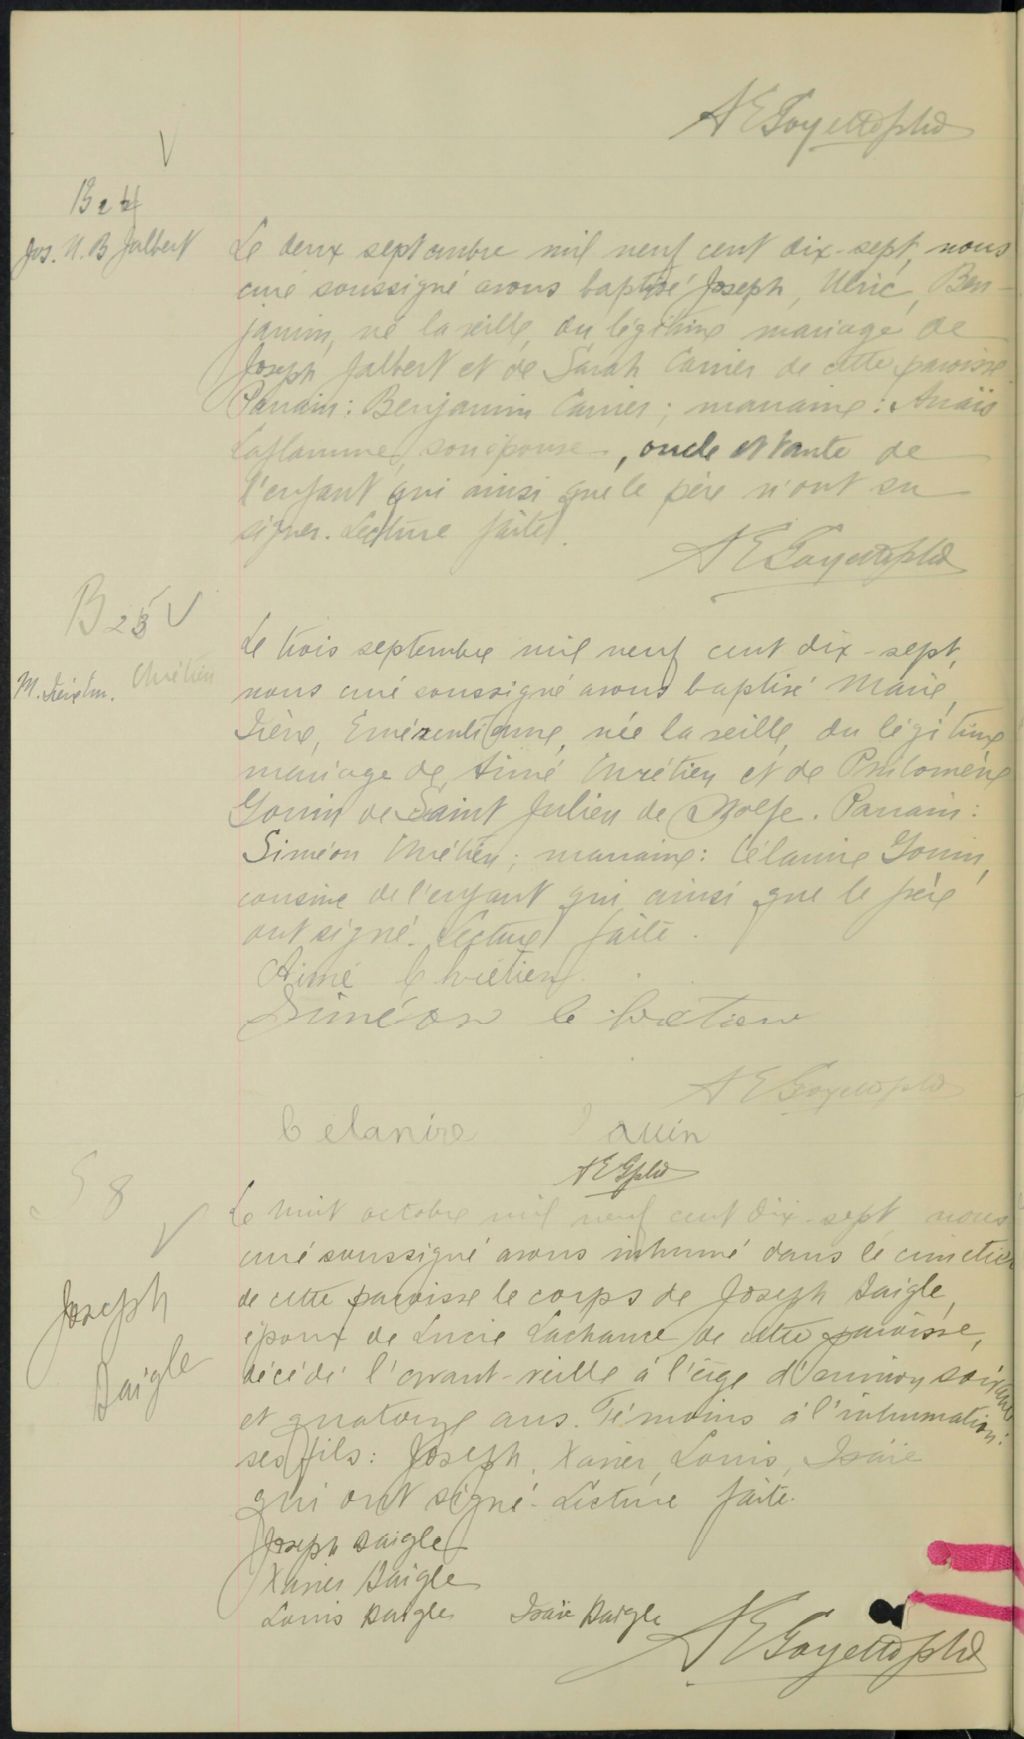 A E Goyette ptre
B 24
Jos. U. B Jalbert
Le deux septembre mil neuf cent dix-sept, nous
curé soussigné avons baptisé Joseph, Ulric, Ben-
jamin, né la veille, du légitime mariage de
Joseph Jalbert et de Sarah Carrier de cette paroisse.
Parrain: Benjamin Carrier; marraine: Anaïs
Laflamme, son épouse, oncle et tante de
l'enfant qui ainsi que le père n'ont su
signer. Lecture faite.
A E Goyette ptre
B 25
Chrétien
M. Irène Em.
Le trois septembre mil neuf cent dix-sept,
nous curé soussigné avons baptisé Marie,
Irène, Emérentienne, née la veille, du légitime
mariage de Aimé Chrétien et de Philomène
Gouin de Saint Julien de Wolfe. Parrain:
Siméon Chrétien; marraine: Célanire Gouin,
cousine de l'enfant qui, ainsi que le père
ont signé. Lecture faite.
Aimé Chrétien
Siméon Chrétien
A E Goyette ptre
Celanire Gouin
A E G ptre
S 8
Le huit octobre mil neuf cent dix-sept nous
curé soussigné avons inhumé dans le cimetière
Joseph
Daigle
de cette paroisse le corps de Joseph Daigle,
époux de Lucie Lachance de cette paroisse,
décédé l'avant-veille à l'âge d'environ soixante
et quatorze ans. Témoins à l'inhumation:
ses fils: Joseph, Xavier, Louis, Isaïe
qui ont signé. Lecture faite.
Joseph Daigle
Xavier Daigle
Louis Daigle Isaïe Daigle
A E Goyette ptre